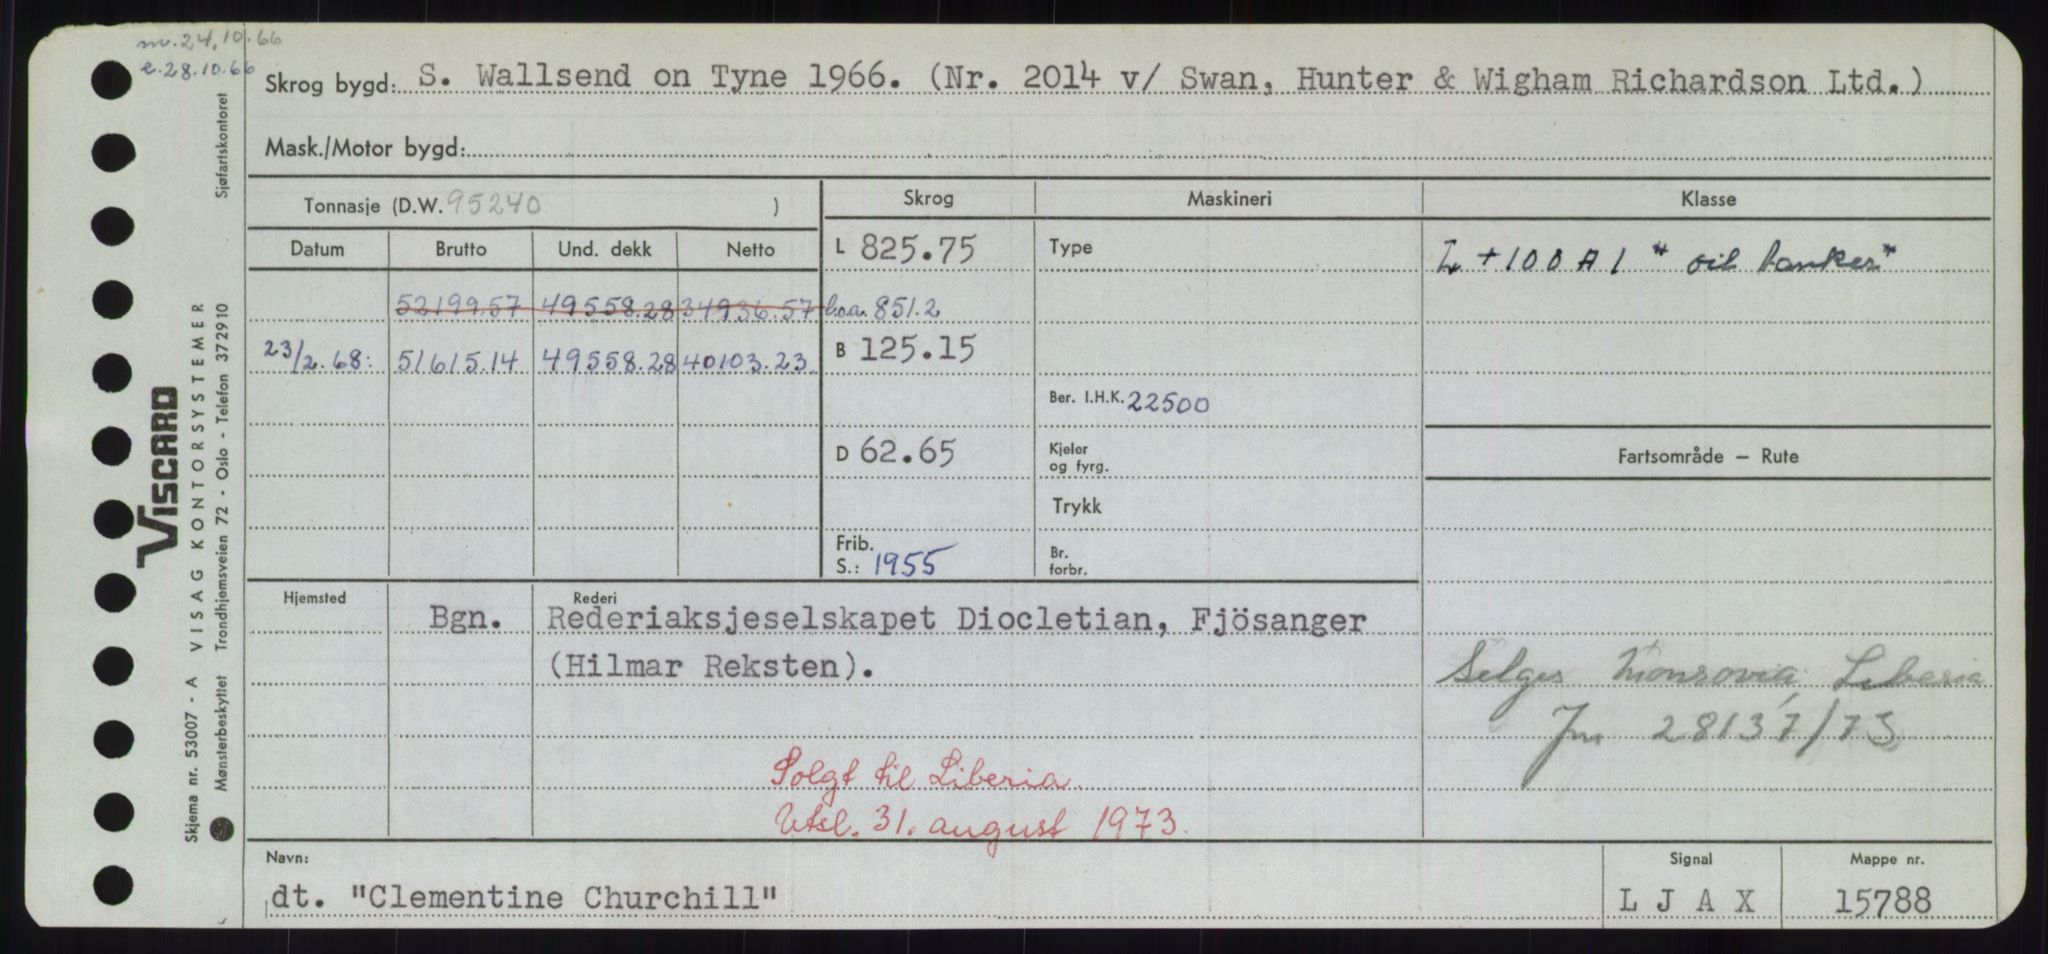 m.24.10.66
e.28.10.66
Skrog bygd: S. Wallsend on Tyne 1966. (Nr. 2014 v/ Swan, Hunter & Wigham Richardson Ltd.)
Mask./Motor bygd:
Tonnasje (D.W. 95240 )
Skrog
Maskineri
Klasse
Datum Brutto Und. dekk Netto
L 825.75
Type
+100A1 "oil tanker"
52199.57 49558.28 34936.57
l.o.a. 851.2
23/2.68: 51615.14 49558.28 40103.23
B 125.15
Ber. I.H.K. 22500
D 62.65
Kjeler
og fyrg.
Fartsområde – Rute
Trykk
Frib.
S.: 1955
Br.
forbr.
Hjemsted
Rederi
Bgn. Rederiaksjeselskapet Diocletian, Fjösanger
(Hilmar Reksten).
Selges Monrovia, Liberia
Jnr 28137/73
Solgt til Liberia.
Utsl. 31. august 1973.
Navn:
dt. "Clementine Churchill"
Signal
L J A X
Mappe nr.
15788
VISCARD
Skjema nr. 53007 - A VISAG KONTORSYSTEMER
Mønsterbeskyttet Trondhjemsveien 72 - Oslo - Telefon 372910 Sjøfartskontoret